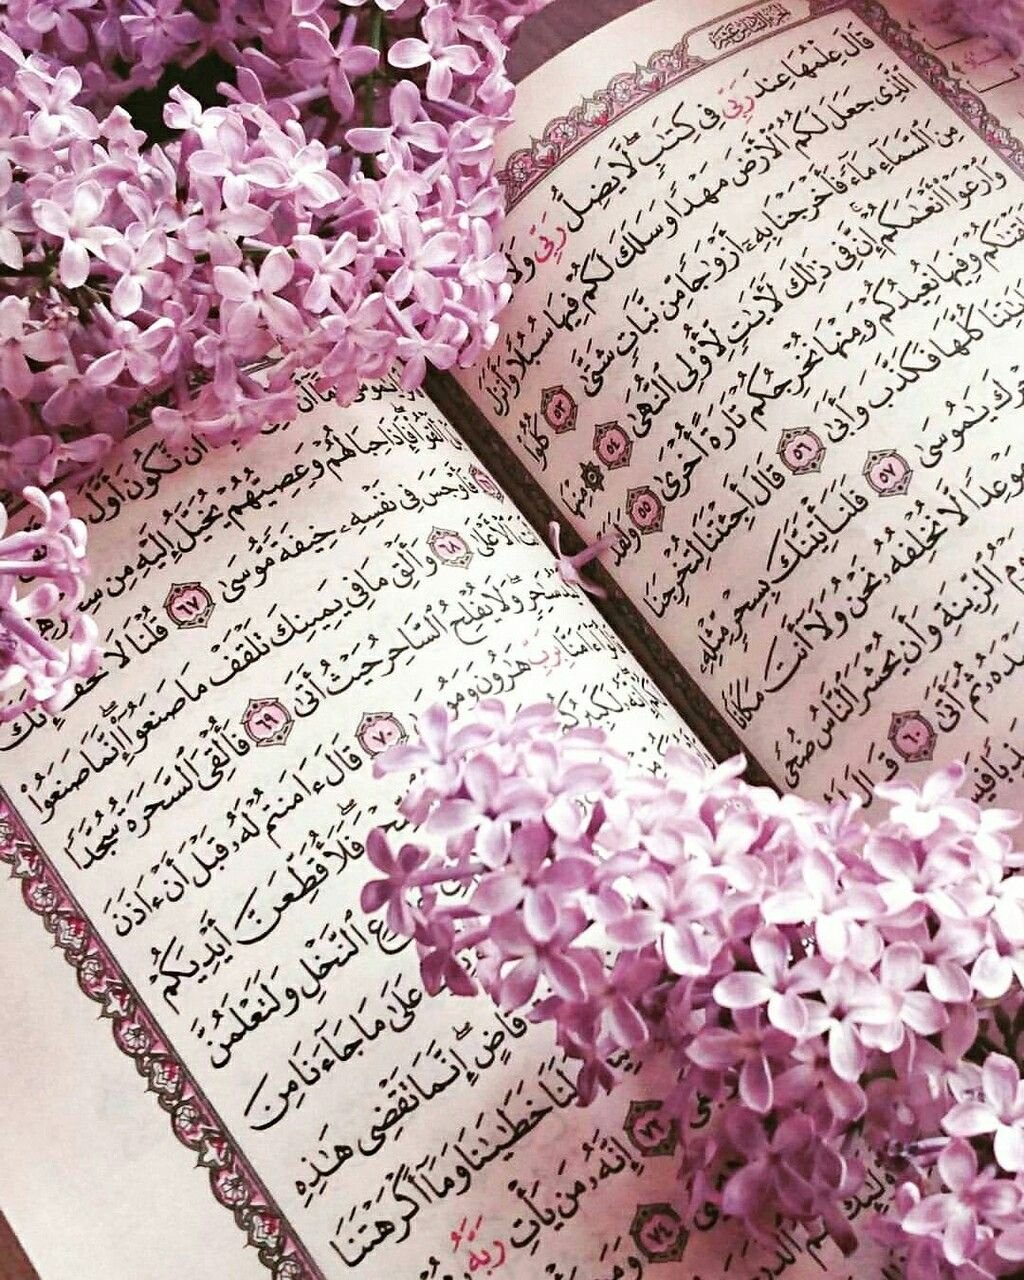 الجزء السادس عشر
قَالَ عِلْمُهَا عِندَ رَبِّى فِى كِتَٰبٍ ۖ لَّا يَضِلُّ رَبِّى وَلَا
ٱلَّذِى جَعَلَ لَكُمُ ٱلْأَرْضَ مَهْدًا وَسَلَكَ لَكُمْ فِيهَا سُبُلًا وَأَنزَلَ
مِنَ ٱلسَّمَآءِ مَآءً فَأَخْرَجْنَا بِهِۦٓ أَزْوَٰجًا مِّن نَّبَاتٍ شَتَّىٰ ٥٣ كُلُوا۟
وَٱرْعَوْا۟ أَنْعَٰمَكُمْ ۗ إِنَّ فِى ذَٰلِكَ لَءَايَٰتٍ لِّأُو۟لِى ٱلنُّهَىٰ ٥٤ مِنْهَا
وَفِيهَا نُعِيدُكُمْ وَمِنْهَا نُخْرِجُكُمْ تَارَةً أُخْرَىٰ ٥٥ وَلَقَدْ
كُلَّهَا فَكَذَّبَ وَأَبَىٰ ٥٦ قَالَ أَجِئْتَنَا لِتُخْرِجَنَا
يَٰمُوسَىٰ ٥٧ فَلَنَأْتِيَنَّكَ بِسِحْرٍ مِّثْلِهِۦ
مَوْعِدًا لَّا نُخْلِفُهُۥ نَحْنُ وَلَآ أَنتَ مَكَانًا
ٱلزِّينَةِ وَأَن يُحْشَرَ ٱلنَّاسُ ضُحًى
ثُمَّ أَتَىٰ ٦٠ قَالَ
أَن نَّكُونَ أَوَّلَ
فَإِذَا حِبَالُهُمْ وَعِصِيُّهُمْ يُخَيَّلُ إِلَيْهِ مِن
فَأَوْجَسَ فِى نَفْسِهِۦ خِيفَةً مُّوسَىٰ ٦٧ قُلْنَا لَا تَخَفْ إِنَّكَ
ٱلْأَعْلَىٰ ٦٨ وَأَلْقِ مَا فِى يَمِينِكَ تَلْقَفْ مَا صَنَعُوٓا۟ ۖ إِنَّمَا صَنَعُوا۟
سَٰحِرٍ ۖ وَلَا يُفْلِحُ ٱلسَّاحِرُ حَيْثُ أَتَىٰ ٦٩ فَأُلْقِىَ ٱلسَّحَرَةُ سُجَّدًا
ءَامَنَّا بِرَبِّ هَٰرُونَ ٧٠ قَالَ ءَامَنتُمْ لَهُۥ قَبْلَ أَنْ ءَاذَنَ
إِنَّهُۥ لَكَبِيرُكُمُ فَلَأُقَطِّعَنَّ أَيْدِيَكُمْ
ٱلنَّخْلِ وَلَتَعْلَمُنَّ
عَلَىٰ مَا جَآءَنَا مِنَ
قَاضٍ ۖ إِنَّمَا تَقْضِى هَٰذِهِ
لَنَا خَطَٰيَٰنَا وَمَآ أَكْرَهْتَنَا
٧٣ إِنَّهُۥ مَن يَأْتِ رَبَّهُۥ
٧٤